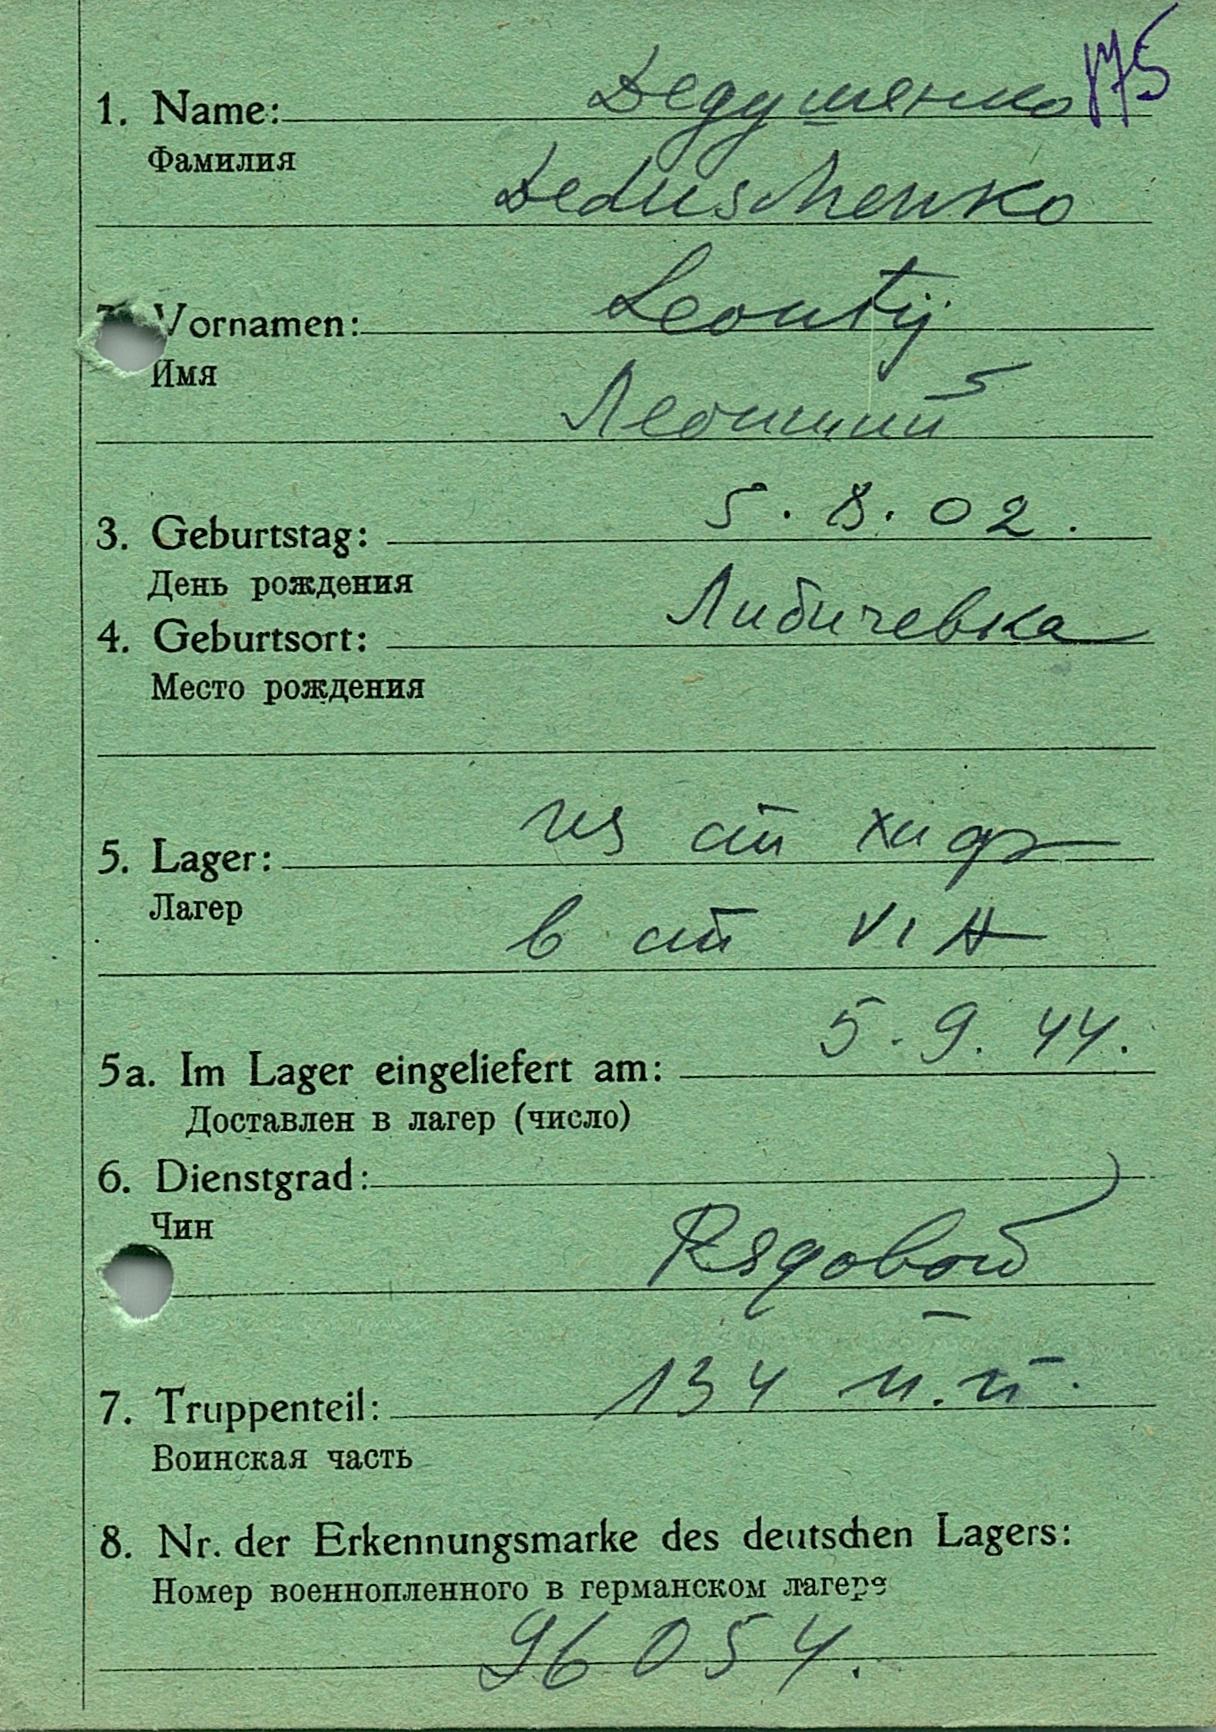 175
1. Name: Дедушенко
Фамилия
Deduschenko
Vornamen: Leontij
Имя
Леонтий
3. Geburtstag: 5.8.02.
День рождения
4. Geburtsort: Либичевка
Место рождения
5. Lager: из ст
Лагер
в ст VI A
5a. Im Lager eingeliefert am: 5.9.44.
Доставлен в лагер (число)
6. Dienstgrad:
Чин
Рядовой
7. Truppenteil: 134 п.п.
Воинская часть
8. Nr. der Erkennungsmarke des deutschen Lagers:
Номер военнопленного в германском лагере
96054.